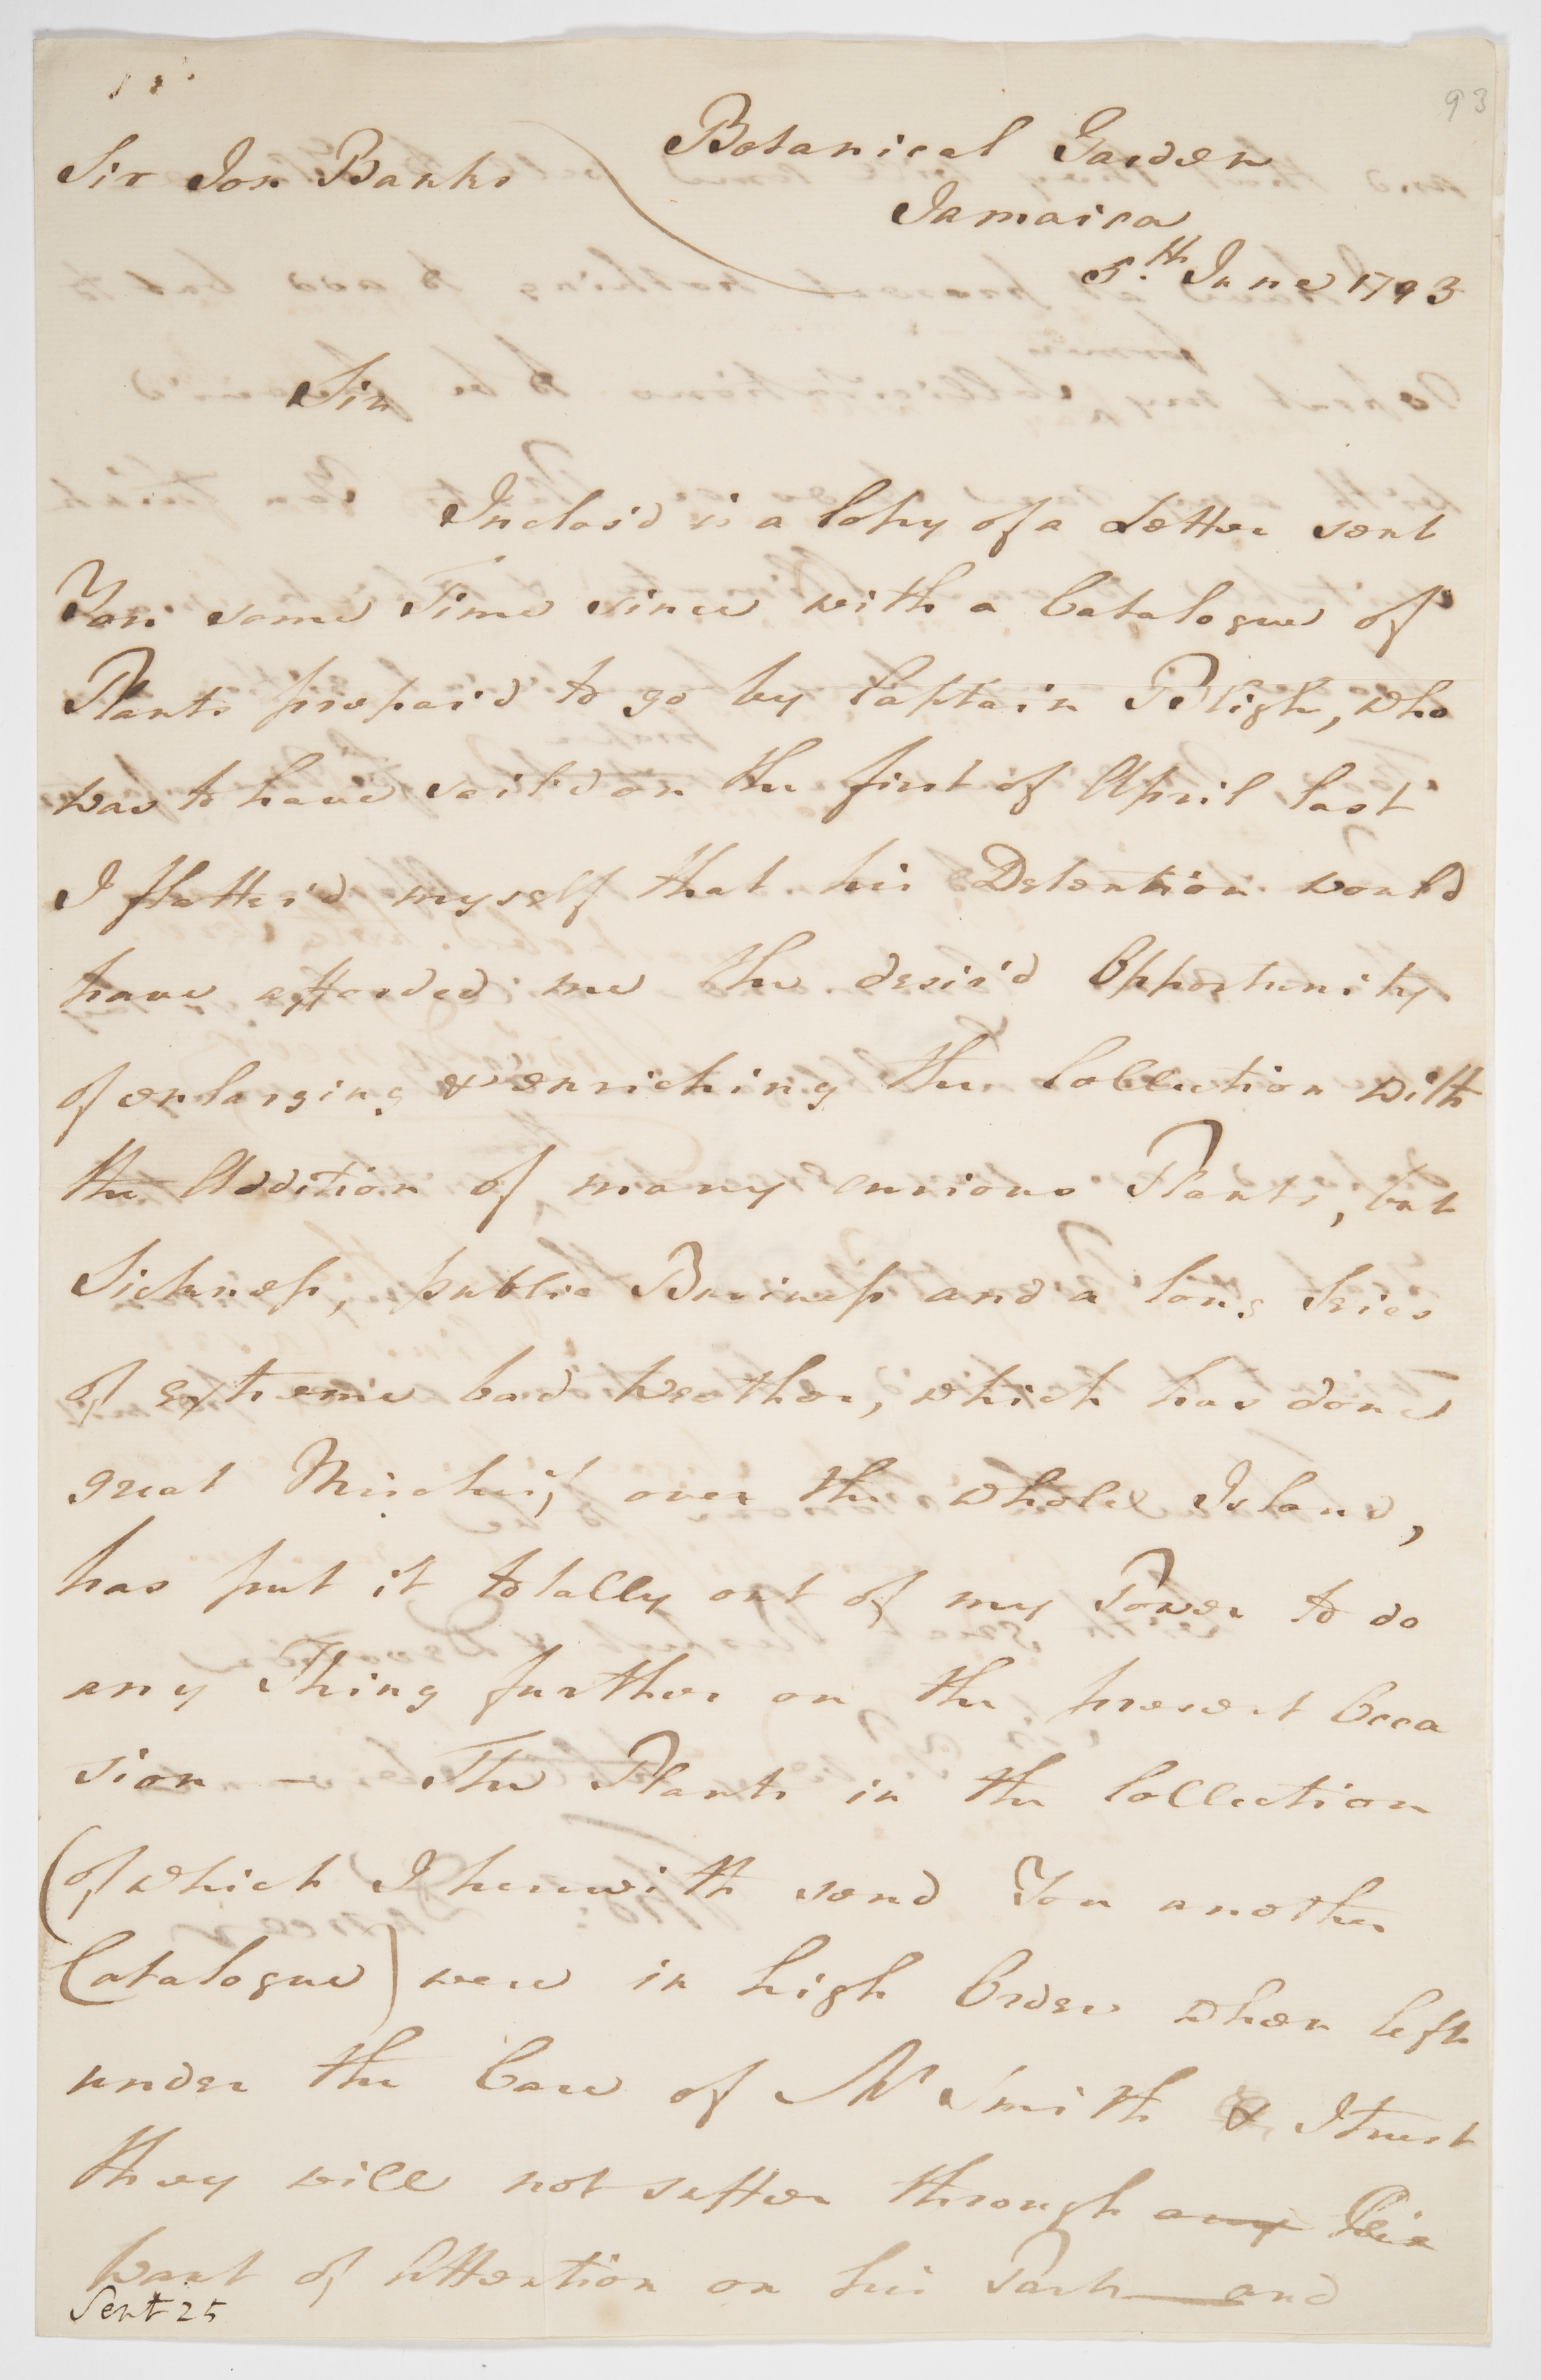 93
Sir Jos Banks
Botanical Garden
Jamaica
5.th June 1793
Sir
Inclos'd is a Copy of a Letter sent
You some Time since with a Catalogue of
Plants prepair'd to go by Captain Bligh, who
was to have sail'd on the first of April last
I flatter'd myself that his Detention would
have afforded me the desir'd Opportunity
of enlarging & enriching the Collection with
the Addition of many curious Plants, but
Sickness, public Business and a long Series
of extreme bad Weather, which has done
great Mischief over the whole Island,
has put it totally out of my Power to do
any Thing further on the present Occa
sion — The Plants in the Collection
(of which I herewith send You another
Catalogue) were in high Order when left
under the Care of Mr Smith & I trust
they will not suffer through any
want of Attention on his Part — and
Sent 25